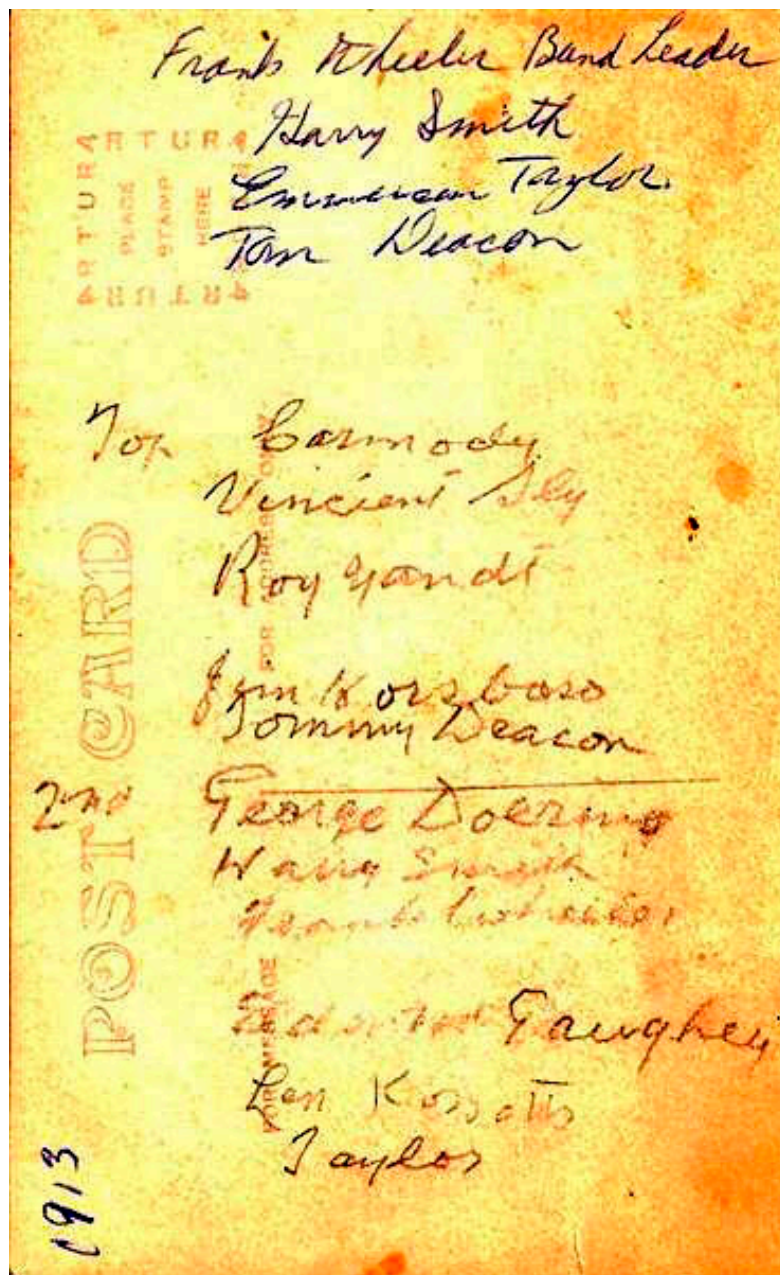 Frank Wheeler Band Leader
Harry Smith
Emmerson Taylor.
Tom Deacon
ARTURA
PLACE
STAMP
HERE
ARTURA
ARTURA
Top Carmody
Vincient Sly
Roy Yandt
Jim
Tommy Deacon
2nd George Doering
Harry Smith
Frank Wheeler
Gaughey
Len
Taylor
POST CARD
FOR ADDRESS ONLY
FOR MESSAGE
1913